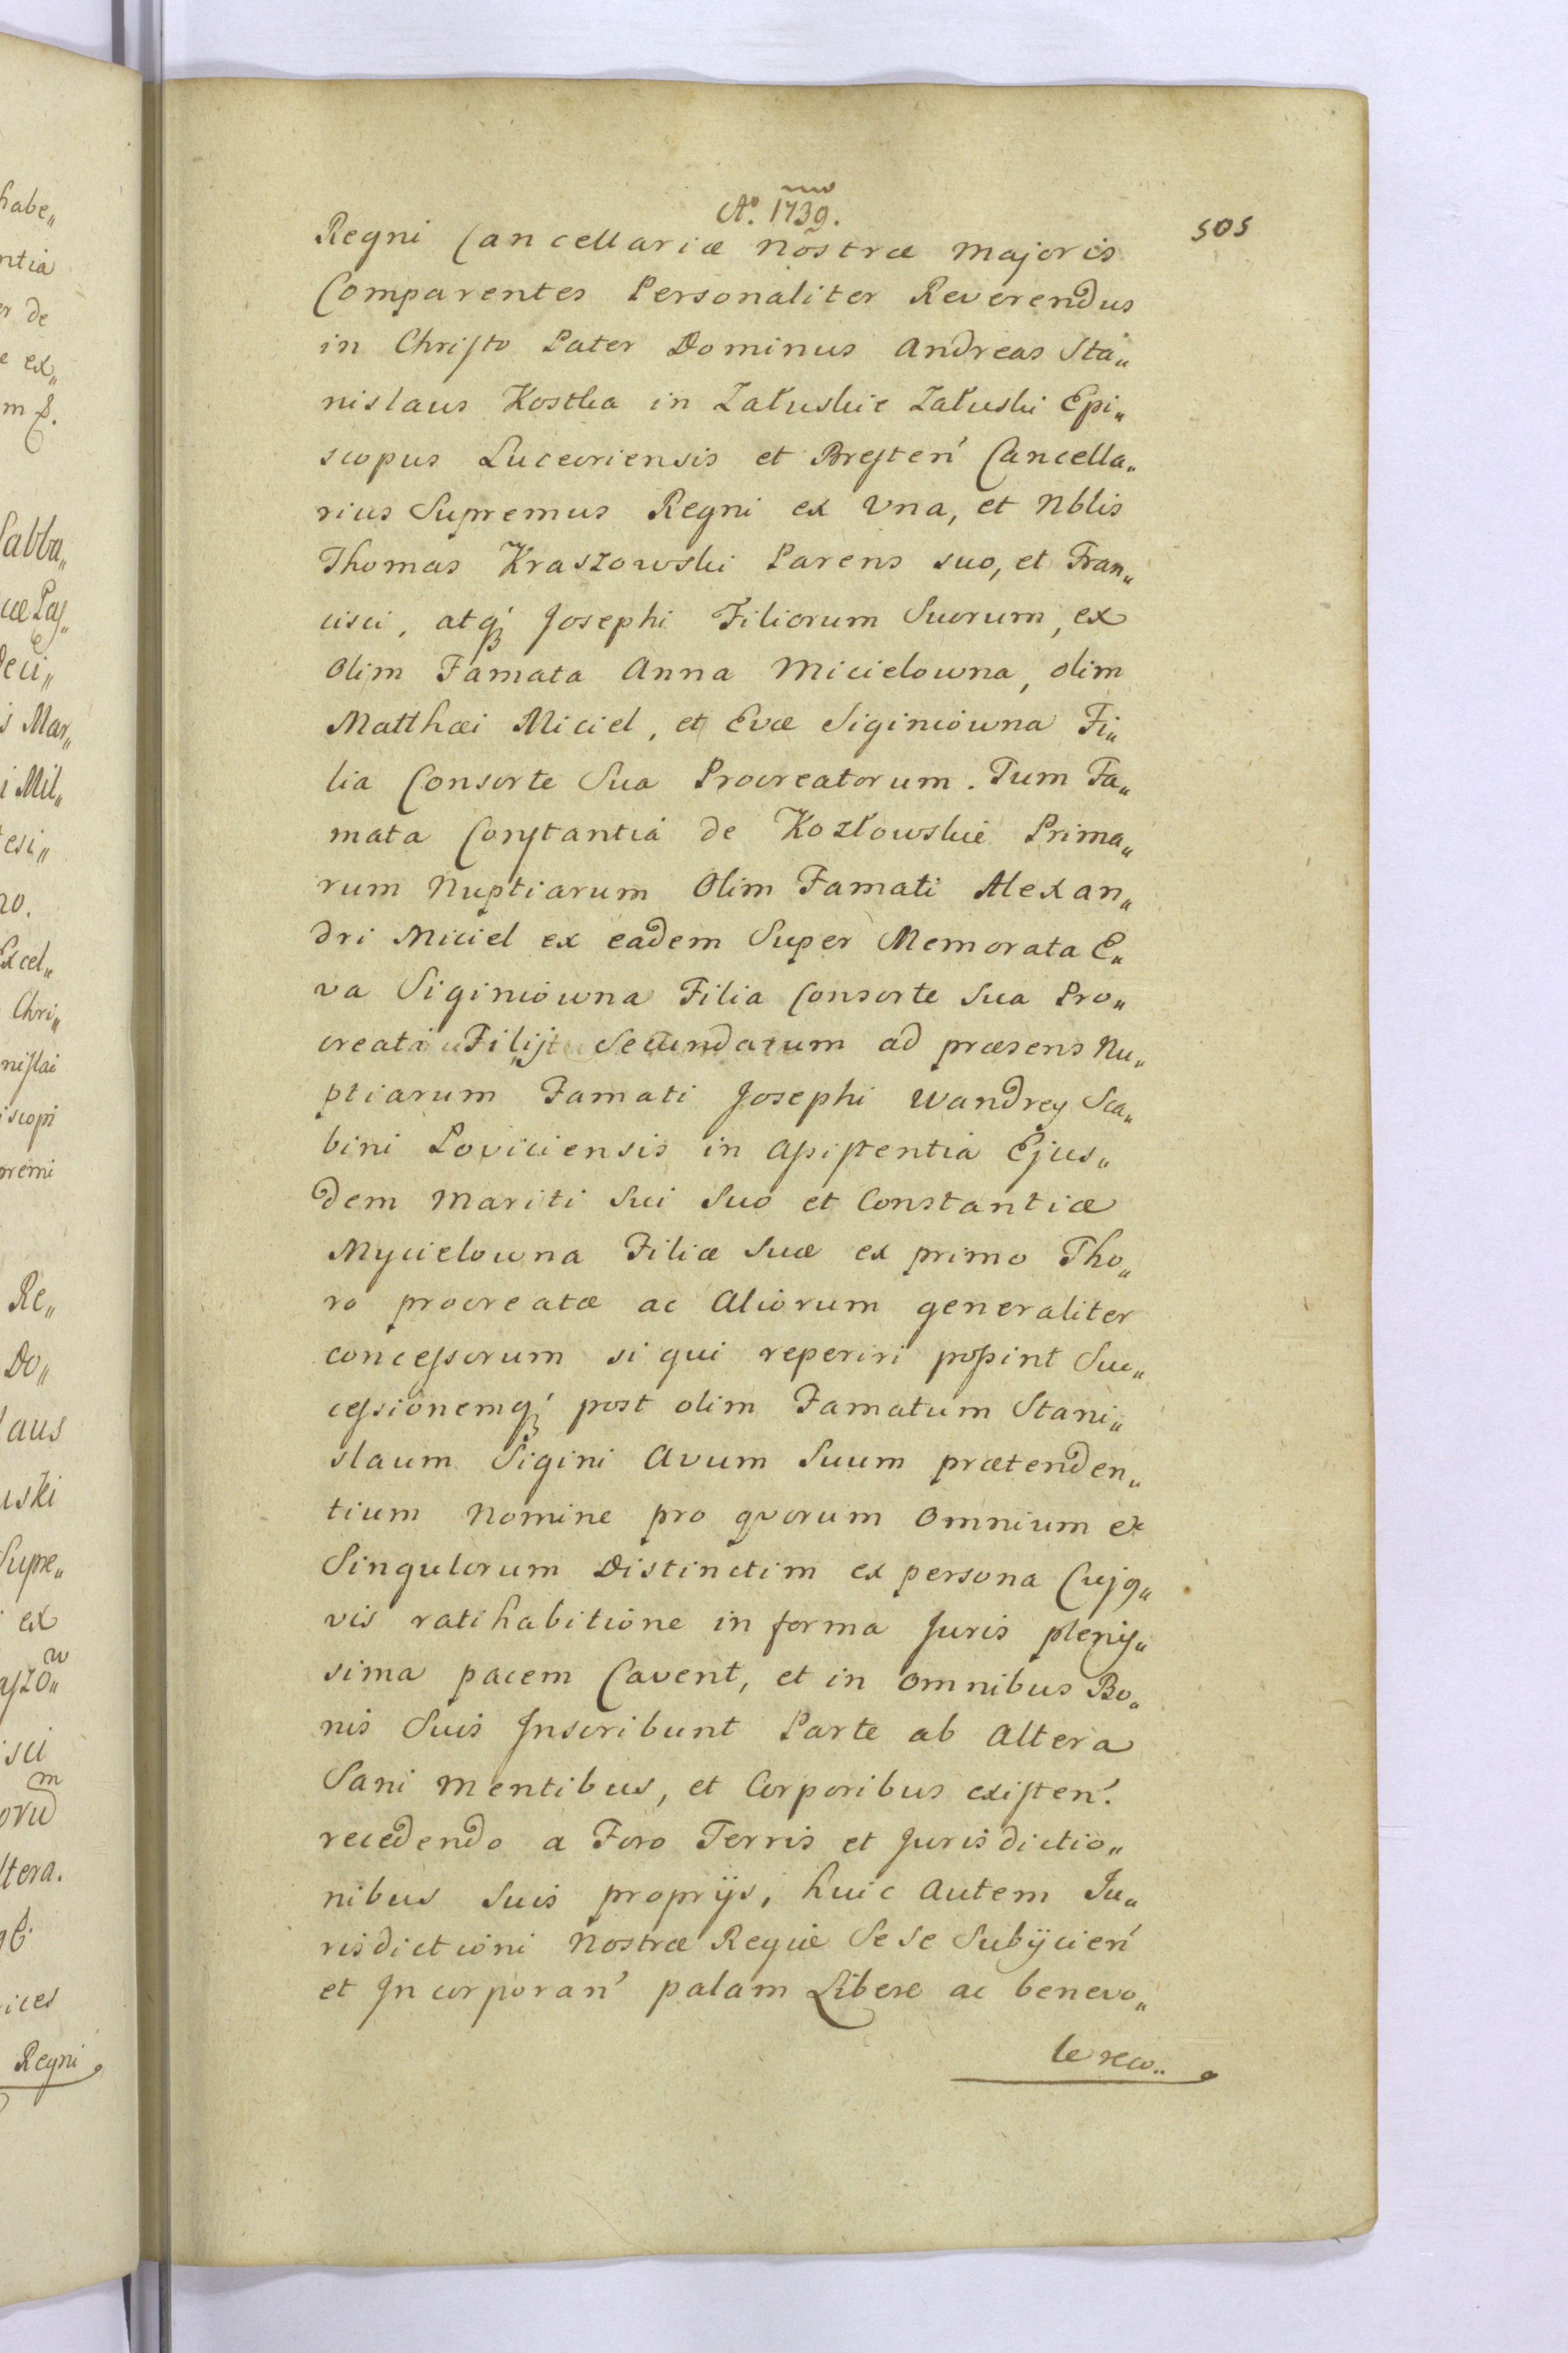 Aº. 1739.
505
Regni Cancellariæ nostræ majoris
Comparentes Personaliter Reverendus
in Christo Pater Dominus Andreas Sta„
nislaus Kostka in Załuskie Załuski Epi„
scopus Luceoriensis et Bresten' Cancella„
rius Supremus Regni ex Una, et Nblis
Thomas Kraszowski Parens suo, et Fran„
cisci, atq' Josephi Filiorum Suorum, ex
Olim Famata Anna Micielowna, olim
Matthæi Miciel, et Evæ Siginiówna Fi„
lia Consorte Sua Procreatorum. Tum Fa„
mata Constantia de Kozłowskie Prima„
rum Nuptiarum Olim Famati Alexan„
dri Miciel ex eadem Super Memorata E„
va Siginiówna Filia Consorte Sua Pro„
creati Filij Secundarum ad præsens Nu„
ptiarum Famati Josephi Wandrey Sca„
bini Loviciensis in Assistentia Ejus„
dem Mariti Sui Suo et Constantiæ
Mycielowna Filiæ Suæ ex primo Tho„
ro procreatæ ac Aliorum generaliter
concessorum si qui reperiri possint Suc„
cessionemq' post olim Famatum Stani„
slaum Sigini Avum Suum prætenden„
tium Nomine pro quorum Omnium et
Singulorum Distinctim ex persona Cujq„
vis ratihabitione in forma Juris plenis„
sima pacem Cavent, et in Omnibus Bo„
nis Suis Inscribunt Parte ab Altera
Sani Mentibus, et Corporibus existen'.
recedendo a Foro Terris et Jurisdictio„
nibus Suis proprijs, huic Autem Ju„
risdictioni Nostræ Regiæ Sese Subijcien'
et Incorporan' palam Libere ac benevo„
le reco„
habe„
ntia
er de
e ex„
Sabba„
deci„
s Mar„
i Mil„
tesi„
no.
Excel„
Chri„
nislai
iscopi
premi
Re„
Do„
laus
uski
Supre„
ex
aszo„
w
isci
m
oru
ltera.
ices
Regni